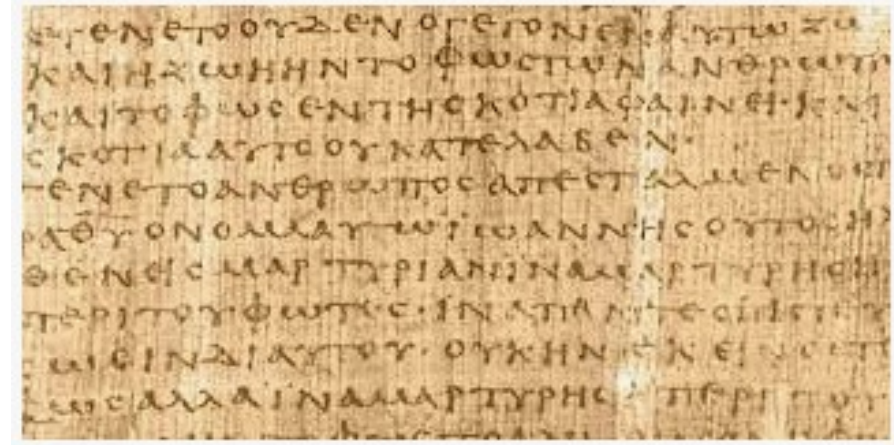 ΕΓΕΝΕΤΟΟΥΔΕΝΟΓΕΓΟΝΕΝ·ΑΥΤΩΖΩ
ΚΑΙΗΖΩΗΗΝΤΟΦΩϹΤΩΝΑΝΘΡΩΠ
ΚΑΙΤΟΦΩϹΕΝΤΗϹΚΟΤΙΑΦΑΙΝΕΙ·ΚΑΙ
ϹΚΟΤΙΑΑΥΤΟΟΥΚΑΤΕΛΑΒΕΝ·
ΓΕΝΕΤΟΑΝΘΡΩΠΟϹΑΠΕϹΤΑΛΜΕΝΟϹΠ
ΡΑΘ̅Υ̅ΟΝΟΜΑΑΥΤΩΪΩΑΝΝΗϹΟΥΤΟϹΗ
ΘΕΝΕΙϹΜΑΡΤΥΡΙΑΝΙΝΑΜΑΡΤΥΡΗϹΗ
ΠΕΡΙΤΟΥΦΩΤΟϹ·ΙΝΑΠΑΝΤΕϹΠΙϹΤΕΥ
ϹΩϹΙΝΔΙΑΥΤΟΥ·ΟΥΚΗΝΕΚΕΙΝΟϹΤΟ
ΦΩϹΑΛΛΑΙΝΑΜΑΡΤΥΡΗϹΗΠΕΡΙΤΟΥ